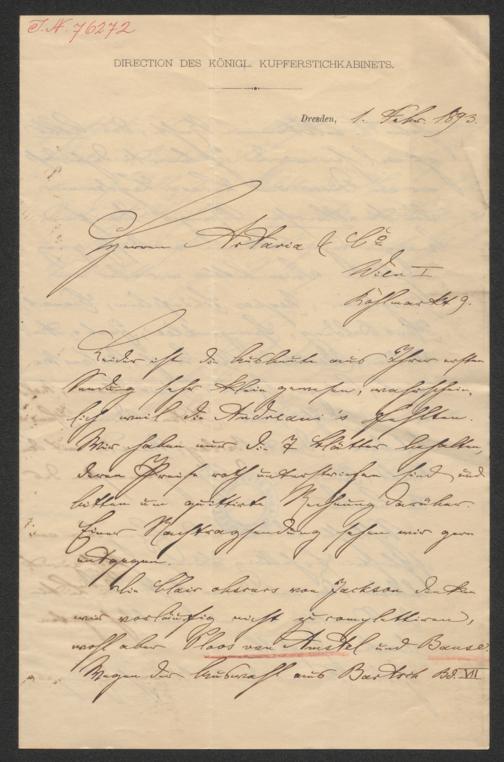 J. N. 76272
DIRECTION DES KÖNIGL. KUPFERSTICHKABINETS.
Dresden, 1. Febr. 1893.
Herren Artaria & Co
Wien I
Kohlmarkt 9.
Leider ist die Ausbeute aus Ihrer ersten
Sendung sehr klein gewesen, wahrschein-
lich weil die Andreani's fehlten.
Wir haben nur die 7 Blätter behalten,
deren Preise roth unterstrichen sind und
bitten um quittirte Rechnung darüber.
Einer Nachtragsendung sehen wir gern
entgegen.
Die Clair obscurs von Jackson denken
wir vorläufig nicht zu complettiren,
wohl aber Ploos van Amstel und Bause.
Wegen der Auswahl aus Bartsch Bd. VII